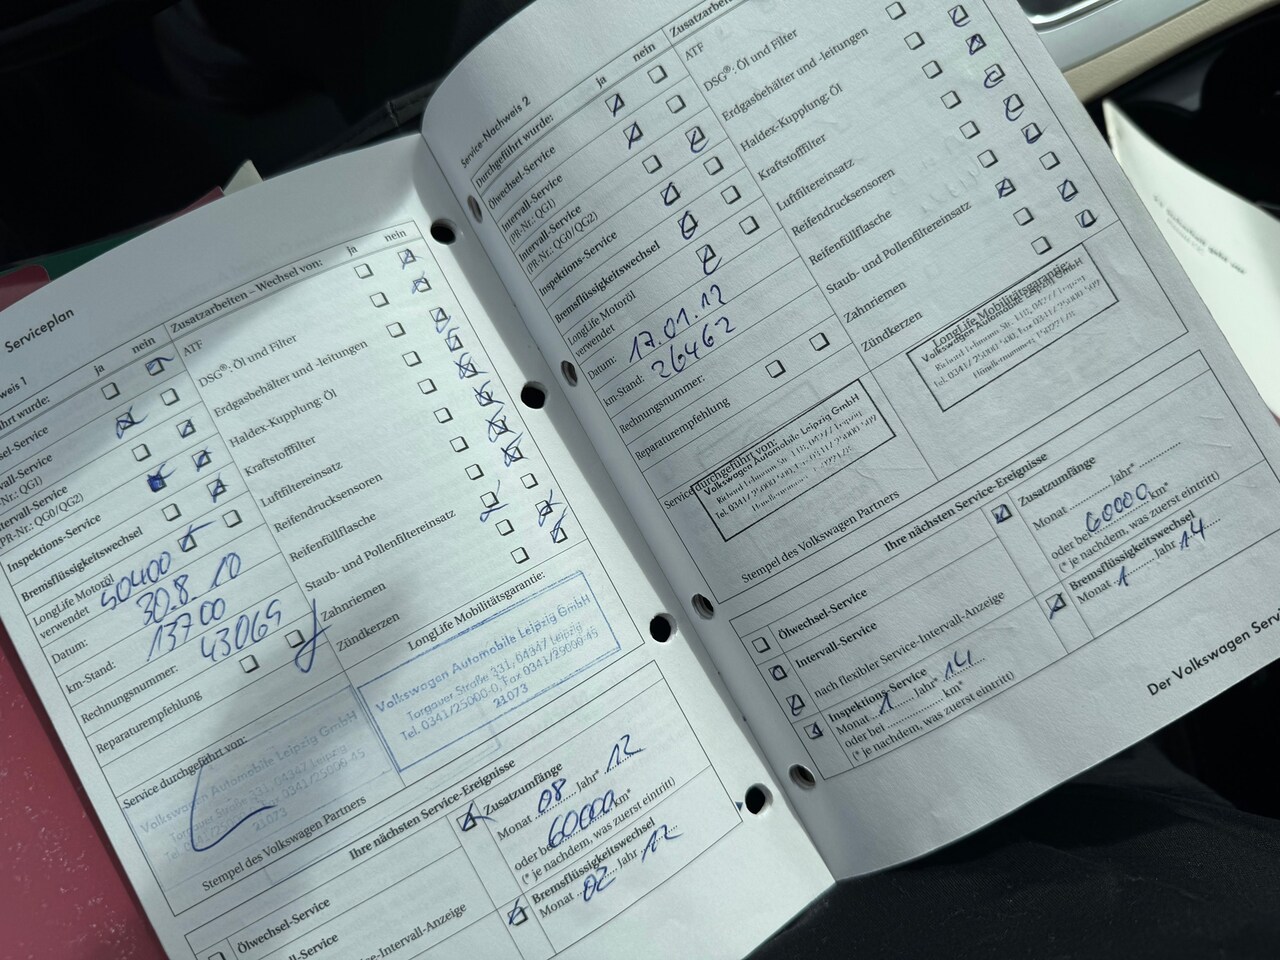 Serviceplan
weis 1
ja nein
Zusatzarbeiten – Wechsel von:
ja nein
ührt wurde:
sel-Service
rvall-Service
Nr.: QG1)
tervall-Service
PR-Nr.: QG0/QG2)
Inspektions-Service
Bremsflüssigkeitswechsel
LongLife Motoröl
verwendet
50400
Datum: 30.8. 10
km-Stand: 13700
Rechnungsnummer: 43065
Reparaturempfehlung
ATF
DSG®: Öl und Filter
Erdgasbehälter und -leitungen
Haldex-Kupplung: Öl
Kraftstofffilter
Luftfiltereinsatz
Reifendrucksensoren
Reifenfüllflasche
Staub- und Pollenfiltereinsatz
Zahnriemen
Zündkerzen
Service durchgeführt von:
Volkswagen Automobile Leipzig GmbH
Torgauer Straße 331, 04347 Leipzig
Tel. 0341/25000-0, Fax 0341/25000-45
21073
Stempel des Volkswagen Partners
LongLife Mobilitätsgarantie:
Volkswagen Automobile Leipzig GmbH
Torgauer Straße 331, 04347 Leipzig
Tel. 0341/25000-0, Fax 0341/25000-45
21073
Ihre nächsten Service-Ereignisse
Ölwechsel-Service
ll-Service
e-Intervall-Anzeige
Zusatzumfänge
Monat 08 Jahr* 12
oder bei 60000 km*
(* je nachdem, was zuerst eintritt)
Bremsflüssigkeitswechsel
Monat 02 Jahr 12
Service-Nachweis 2
Durchgeführt wurde:
ja nein
Zusatzarbeite
Ölwechsel-Service
Intervall-Service
(PR-Nr.: QG1)
Intervall-Service
(PR-Nr.: QG0/QG2)
Inspektions-Service
Bremsflüssigkeitswechsel
LongLife Motoröl
verwendet
Datum: 17.01.12
km-Stand: 26462
Rechnungsnummer:
Reparaturempfehlung
ATF
DSG®: Öl und Filter
Erdgasbehälter und -leitungen
Haldex-Kupplung: Öl
Kraftstofffilter
Luftfiltereinsatz
Reifendrucksensoren
Reifenfüllflasche
Staub- und Pollenfiltereinsatz
Zahnriemen
Zündkerzen
Service durchgeführt von:
Volkswagen Automobile Leipzig GmbH
Stempel des Volkswagen Partners
LongLife Mobilitätsgarantie:
Volkswagen Automobile Leipzig GmbH
Ihre nächsten Service-Ereignisse
Ölwechsel-Service
Intervall-Service
nach flexibler Service-Intervall-Anzeige
Inspektions-Service
Monat 1 Jahr* 14
oder bei km*
(* je nachdem, was zuerst eintritt)
Zusatzumfänge
Monat Jahr*
oder bei 60000 km*
(* je nachdem, was zuerst eintritt)
Bremsflüssigkeitswechsel
Monat 1 Jahr 14
Der Volkswagen Servi